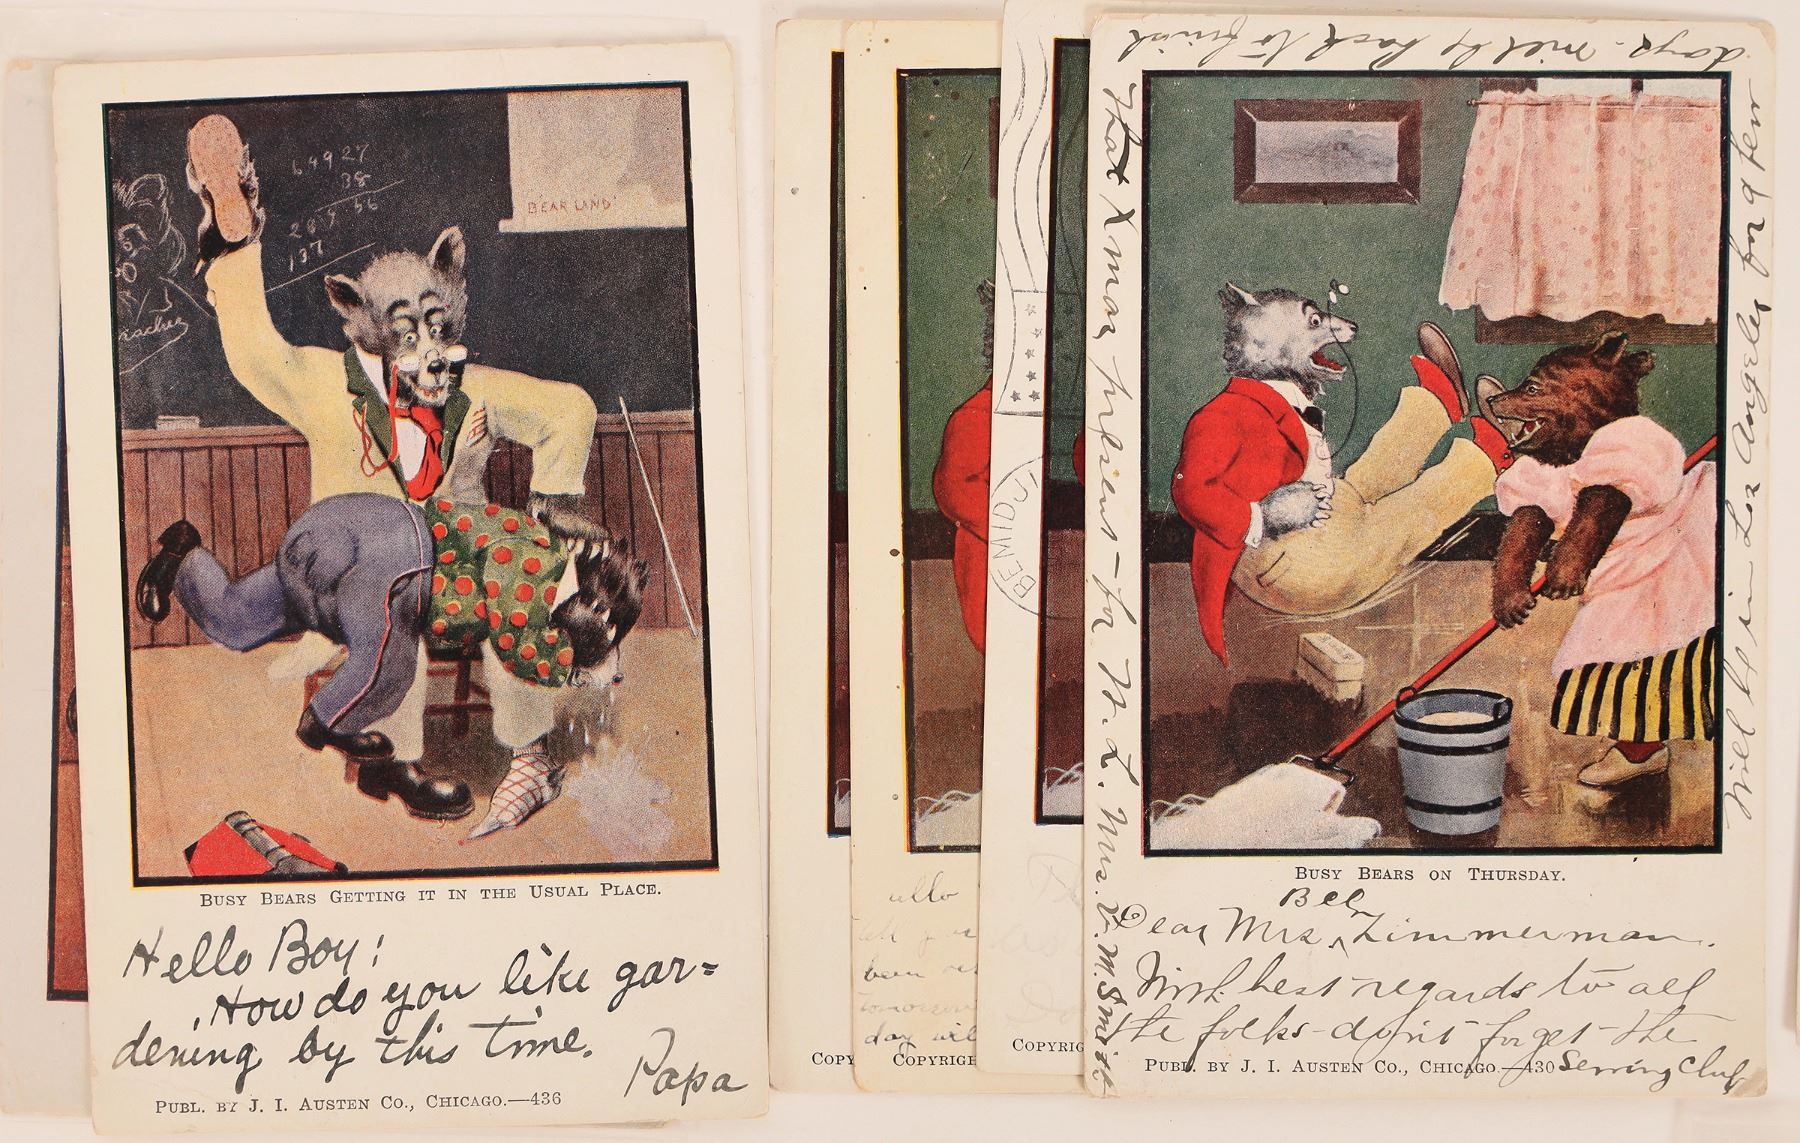 64927
38
137
BEAR LAND
BUSY BEARS GETTING IT IN THE USUAL PLACE.
Hello Boy!
How do you like gar=
dening by this time.
Papa
PUBL. BY J. I. AUSTEN CO., CHICAGO.—436
COPY
ullo
been
day wil
COPYRIGH
BEMIDJI
COPYRIG
days - will be back to finish
That Xmas present - for W. L. Mrs. V. M. Smith
will be in Los Angeles for a few
BUSY BEARS ON THURSDAY.
Bell
Dear Mrs ^ Zimmerman.
With best regards to all
the folks - don't forget - the
Sewing Club
PUBL. BY J. I. AUSTEN CO., CHICAGO.—430